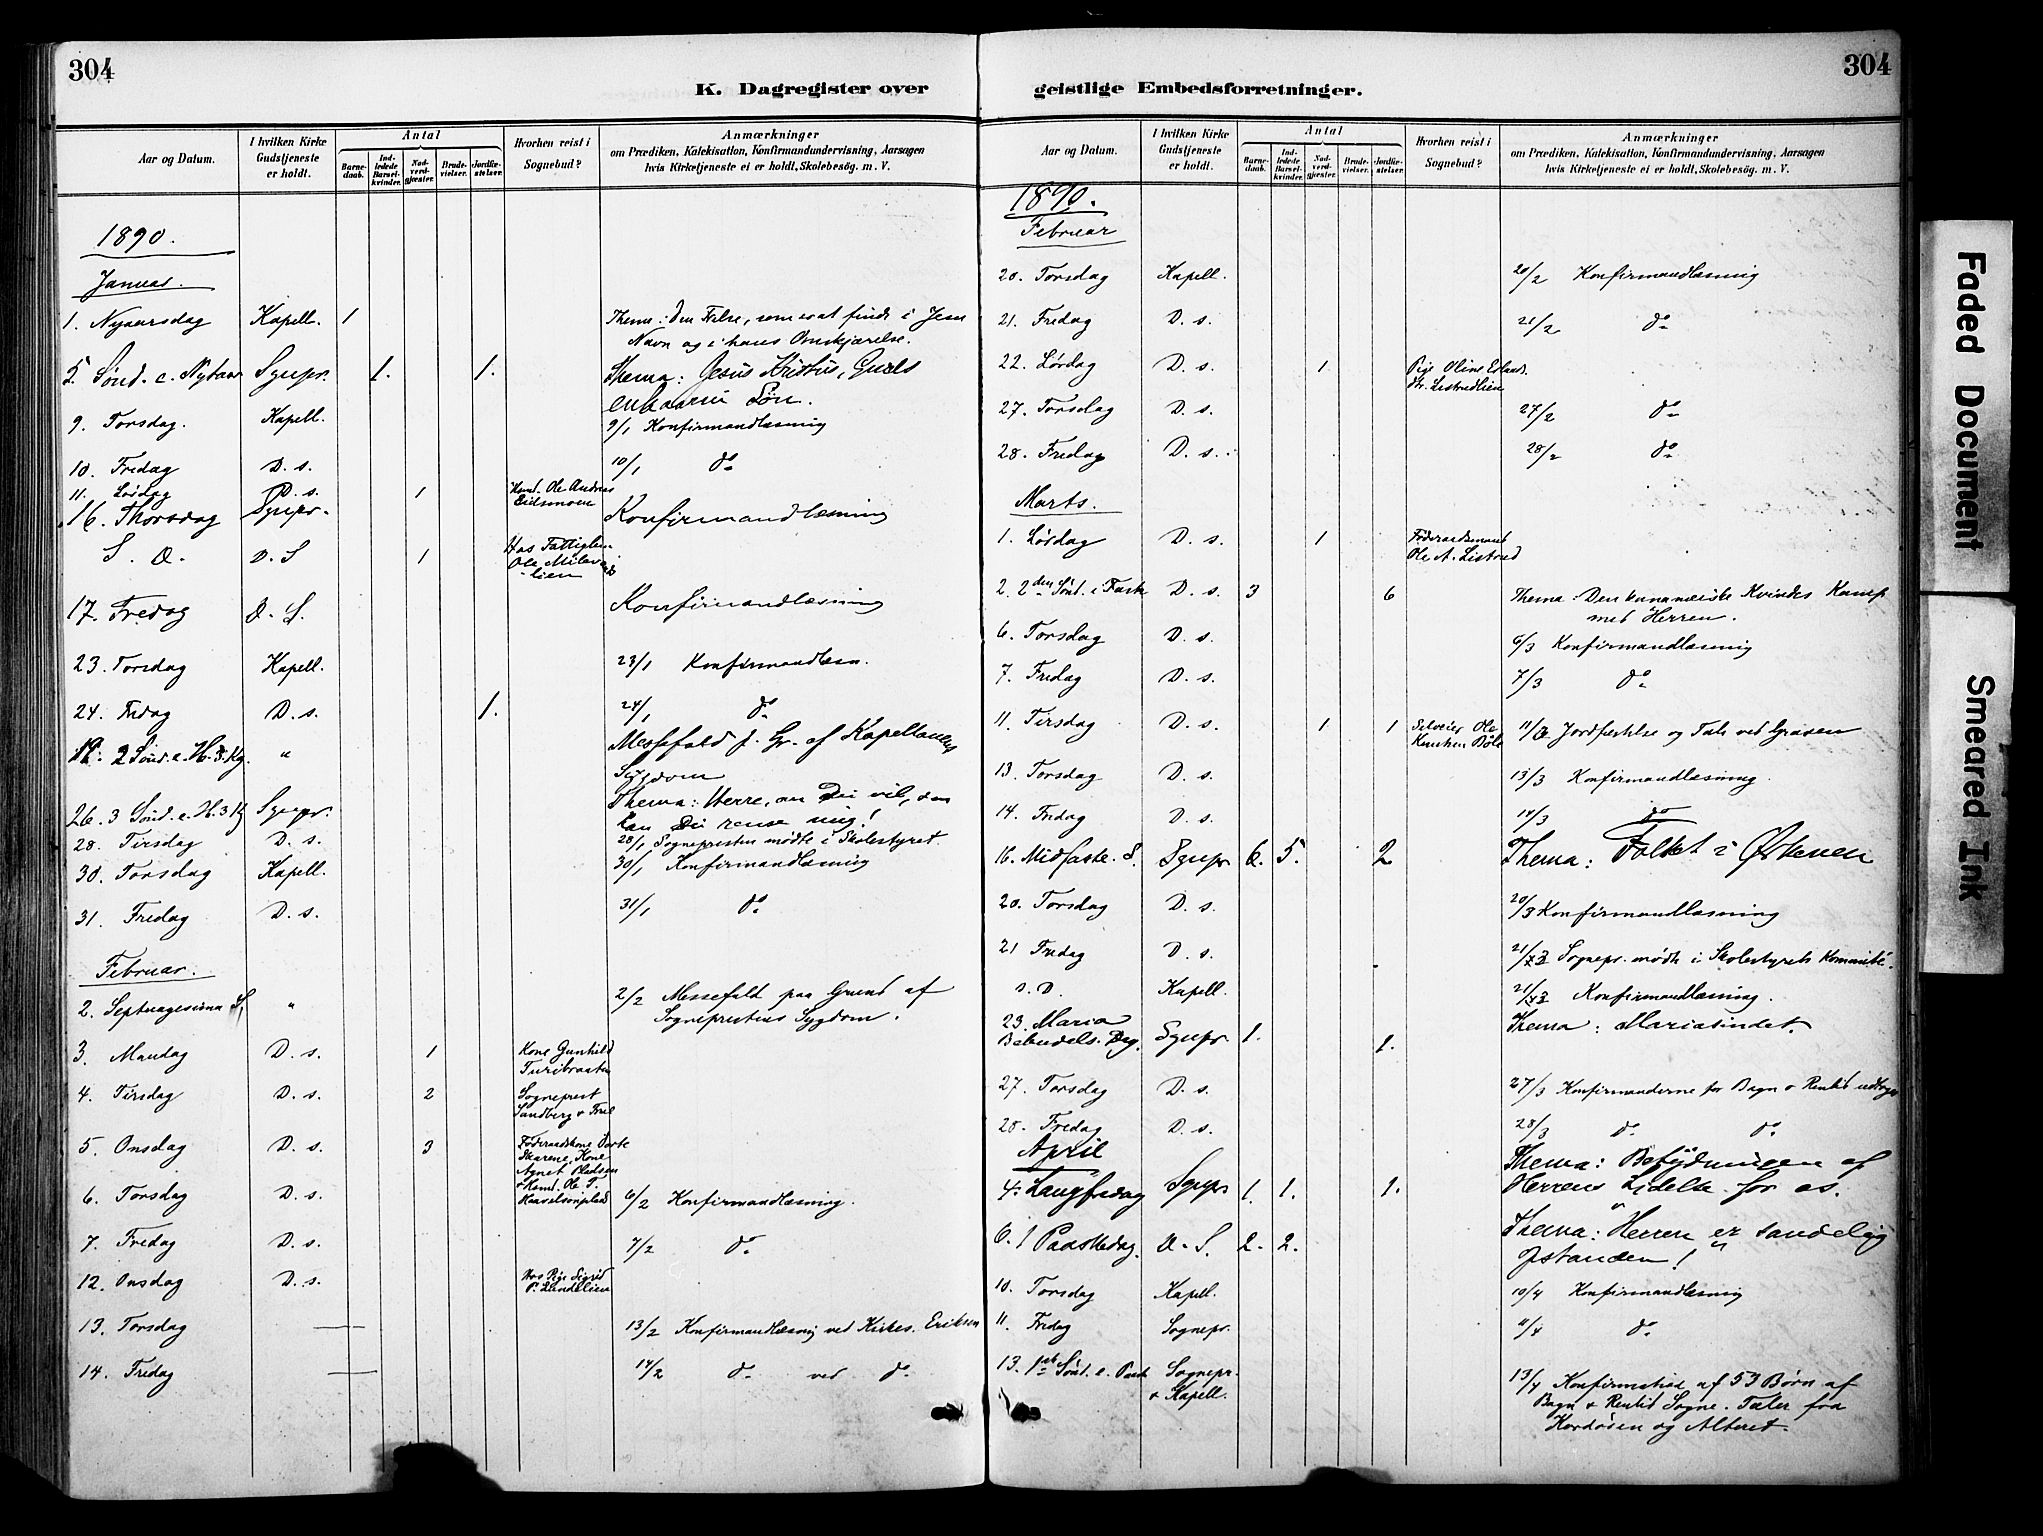 304
K. Dagregister over
Aar og Datum.
I hvilken Kirke Gudstjeneste er holdt.
Antal
Barne-daab.
Ind-ledede Barsel-kvinder.
Nad-verd-gjæster.
Brude-vielser.
Jordfæ-stelser.
Hvorhen reist i Sognebud?
Anmærkninger
om Prædiken, Katekisation, Konfirmandundervisning, Aarsagen
hvis Kirketjeneste ei er holdt, Skolebesög. m. V.
1890.
Januar.
1. Nyaarsdag Kapell. 1 Thema: Den Frelse, som er at finde i Jesu
Navn og i hans Omskjærelse.
5. Sönd. e. Nytaar Sgnpr. 1. 1. Thema: Jesus Kristus, Guds
enbaarne Sön.
9. Torsdag. Kapell. 9/1 Konfirmandlæsning
10. Fredag D. s. 10/1 do
11. Lördag D. s. 1 Ole Andres
Eidsmoen
16. Thorsdag Sgnpr. Konfirmandlæsning
S. D. D. S 1 Hos Fattiglem
Ole
lien
17. Fredag D. S. Konfirmandlæsning
23. Torsdag Kapell. 23/1 Konfirmandlæsn.
24. Fredag D. s. 1. 24/1 do
2 Sönd. e. H. 3. Kg. " Messefald p. Gr. af Kapellanens
Sygdom
26. 3 Sönd. e. H. 3 Kg Sgnpr. Thema: Herre, om Du vil, saa
kan Du rense mig!
28. Tirsdag D. s. 28/1 Sognepresten mödte i Skolestyret.
30. Torsdag Kapell. 30/1 Konfirmandlæsning
31. Fredag D. s. 31/1 do
Februar.
2. Septuagesima S. " 2/2 Messefald paa Grund af
Sogneprestens Sygdom.
3. Mandag D. s. 1 Kone Gunhild
Turibraaten
4. Tirsdag D. s. 2 Sogneprest
Sandberg &
5. Onsdag D. s. 3 Föderaadskone Dorte
Skarene, Kone
Agnet Pladsen
6. Torsdag D. s. 6/2 Konfirmandlæsning.
7. Fredag D. s. 7/2 do
12. Onsdag D. s. Hos Pige Sigrid
P. Lundelien
13. Torsdag — 13/2 Konfirmandlæsning ved Kirkes. Eriksen
14. Fredag — 14/2 do ved do
304
geistlige Embedsforretninger.
Aar og Datum.
I hvilken Kirke Gudstjeneste er holdt.
Antal
Barne-daab.
Ind-ledede Barsel-kvinder.
Nad-verd-gjæster.
Brude-vielser.
Jordfæ-stelser.
Hvorhen reist i Sognebud?
Anmærkninger
om Prædiken, Katekisation, Konfirmandundervisning, Aarsagen
hvis Kirketjeneste ei er holdt, Skolebesög. m. V.
1890.
Februar
20. Torsdag Kapell. 20/2 Konfirmandlæsning
21. Fredag D. s. 21/2 do
22. Lördag D. s. 1 Pige Oline
27. Torsdag D. s. 27/2 do
28. Fredag D. s. 28/2 do
Marts.
1. Lördag D. s. 1 Föderaadsmand
Ole A. Listrud
2. 2den Sönd. i Faste D. s. 3 6 Thema: Den kananæiske Kvindes Kamp
med Herren.
6. Torsdag D. s. 6/3 Konfirmandlæsning
7. Fredag D. s. 7/3 do
11. Tirsdag D. s. 1 1 Selveier Ole
Knutsen Böle 11/3 Jordfæstelse og Tale ved Graven
13. Torsdag D. s. 13/3 Konfirmandlæsning.
14. Fredag D. s. 14/3 do
16. Midfaste. S. Sgnpr 6. 5. 2 Thema: Folket i Ørkenen
20. Torsdag D. s. 20/3 Konfirmandlæsning
21 Fredag D. s. 21/3 Sognepr. mödte i Skolestyrets Komité.
s. D. Kapell. 21/3 Konfirmandlæsning.
23. Maria
Bebudels. Dag. Sgnpr. 1. 1. Thema: Mariasindet.
27. Torsdag D. s. 27/3 Konfirmanderne for Bagn & Reinlid
28. Fredag D. s. 28/3 do do
April
4. Langfredag Sgnpr 1. 1. 1. Thema: Betydningen af
Herrens Lidelse for os.
6. 1 Paaskedag. D. S. 2. 2. Thema: "Herren er sandelig
opstanden!"
10. Torsdag Kapell. 10/4 Konfirmandlæsning
11. Fredag Sognepr. 11/4 do
13. 1ste Sönd. e. Paask Sognepr.
& Kapell. 13/4 Konfirmation af 53 Börn af
Bagn & Reinlid Sogne. Taler fra
Kordören og Alteret.
Faded Document
Smeared Ink